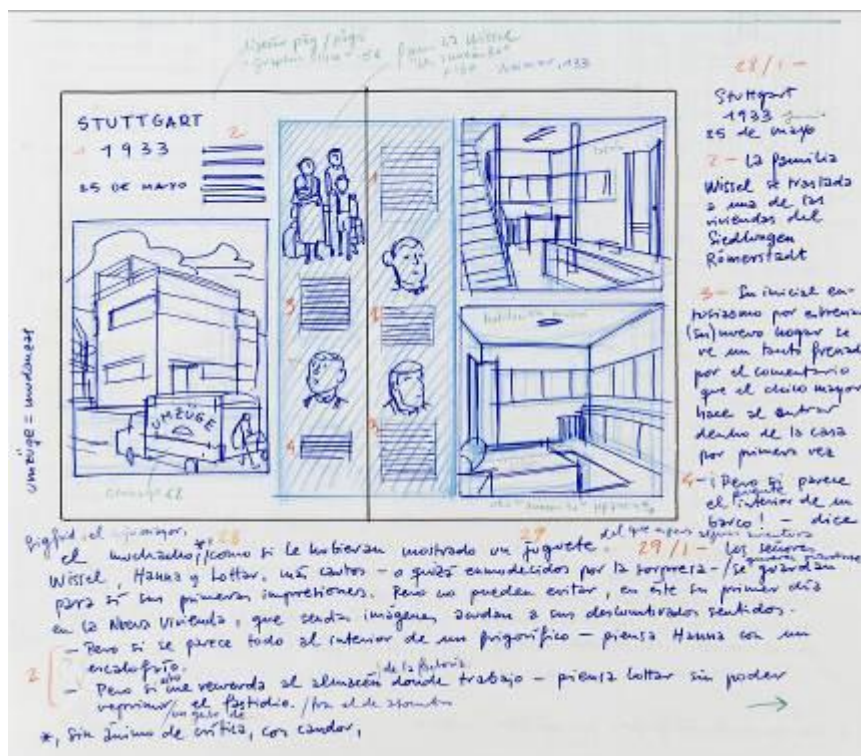 diseño pág/págs
"Graphic 
familia Wissel
28/1-
STUTTGART
1933
25 DE MAYO
2
1
3
4
1
2
3
UMZÜGE
umzüge = mudanzas
Stuttgart
1933
25 de mayo
2- La familia
Wissel se traslada
a una de las
viviendas del
Siedlungen
Römerstadt
3- Su inicial en-
tusiasmo por estrenar
(su) nuevo hogar se
ve un tanto frenado
por el comentario
que el chico mayor
hace al entrar
dentro de la casa
por primera vez
4- ¡Pero si parece
el puente
el interior de un
barco! - dice
28
29
Sigfrid, el mayor,
del que espera alguna aventura
el muchacho,*, como si le hubieran mostrado un juguete. 29/1- Los señores
Wissel, Hanna y Lottar, más cautos - o quizá enmudecidos por la sorpresa - / se guardan
para sí sus primeras impresiones. Pero no pueden evitar, en este su primer día
en la Nueva Vivienda, que sendas imágenes acudan a sus deslumbrados sentidos.
- Pero si se parece todo al interior de un frigorífico - piensa Hanna con un
2
escalofrío.
de la fábrica
- Pero si me recuerda al almacén donde trabajo - piensa Lottar sin poder
reprimir / un gesto de el fastidio. / tras el de asombro
*, sin ánimo de crítica, con candor,